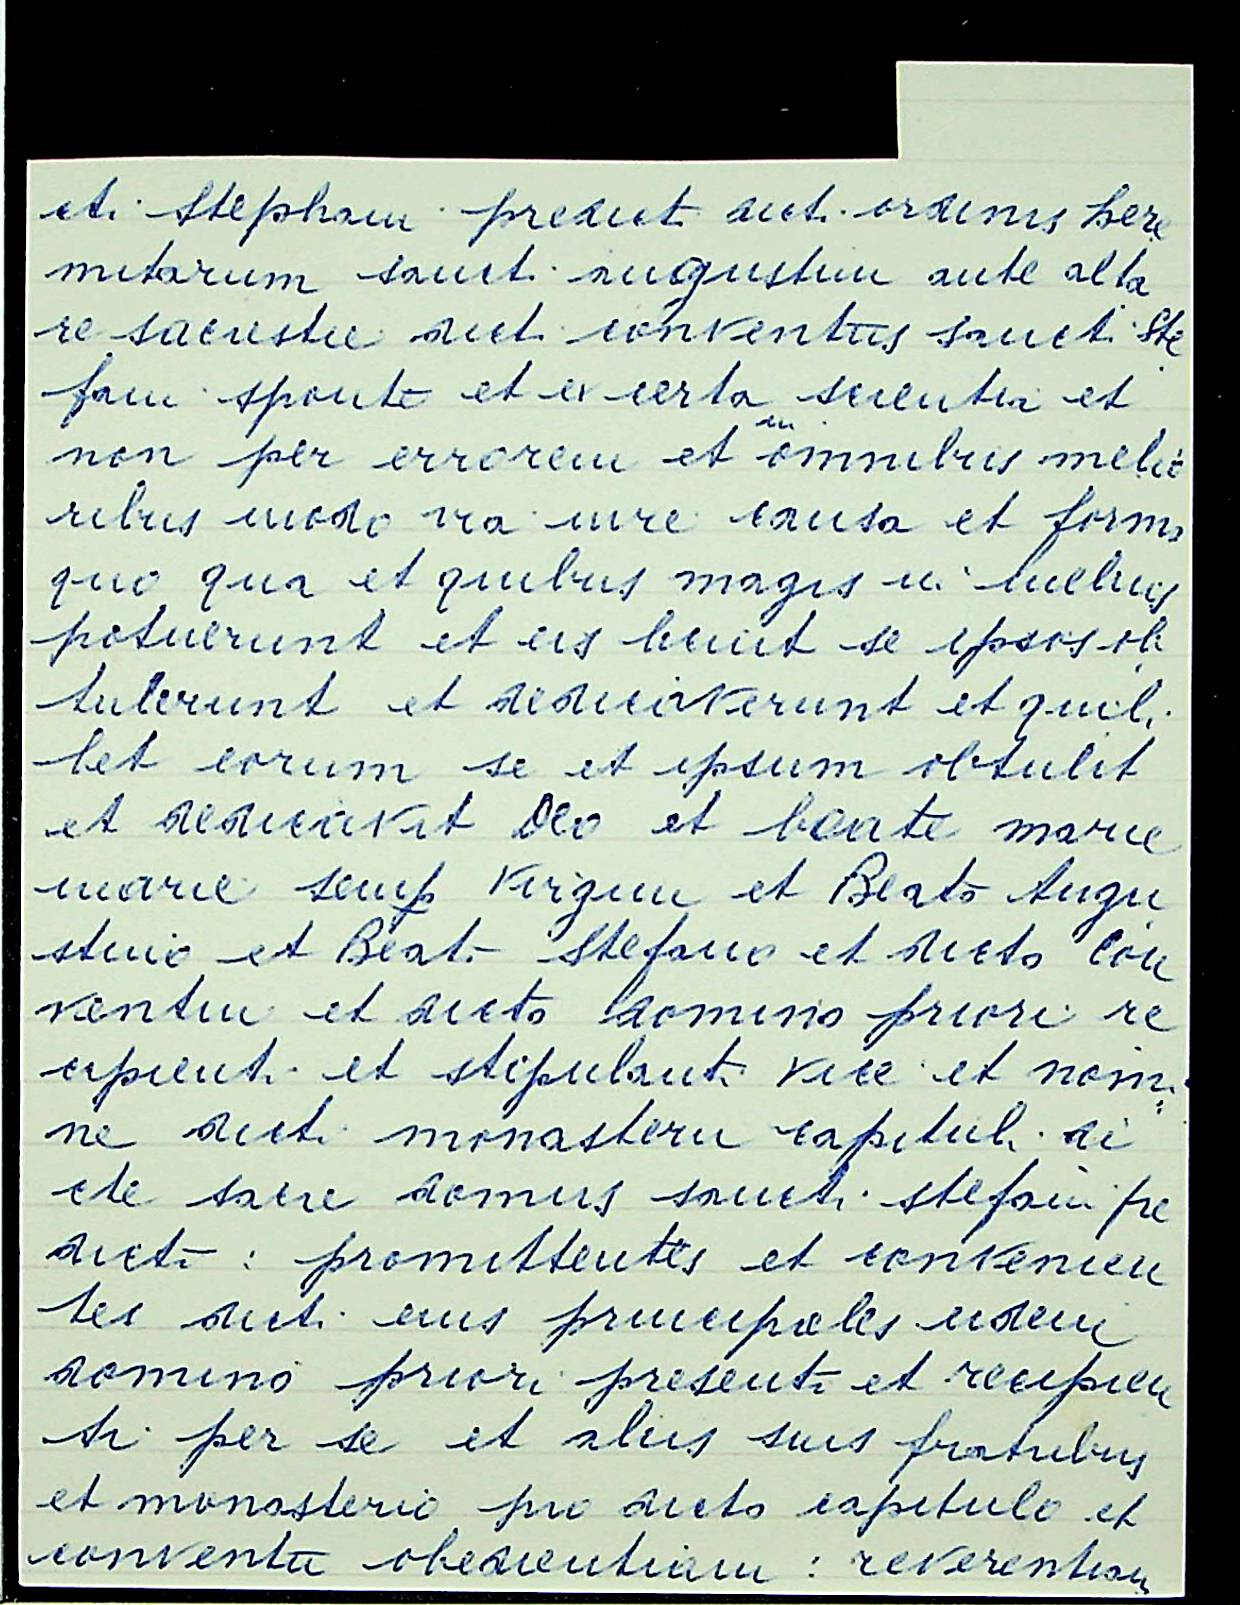 cti Stephani predicti dicti ordinis here
mitarum sancti augustini ante alta
re sacristie dicti conventus sancti Ste
fani sponte et ex certa scientia et
non per errorem et in omnibus melio
ribus modo via iure causa et forma
quo qua et quibus magis ui melius
potuerunt et eis licuit se ipsos ob
tulerunt et dedicaverunt et quili
bet eorum se et ipsum obtulit
et dedicavit Deo et beate marie
marie semp Virgini et Beato Augu
stino et Beato Stefano et dicto Con
ventui et dicto domino priori re
cipienti et stipulanti vice et nomi
ne dicti monasterii capituli di
cte sacre domus sancti stefani pre
dicti : promittentes et convenien
tes dicti eius principales eidem
domino priori presenti et recipien
ti per se et aliis suis fratribus
et monasterio pro dicto capitulo et
conventu obedientiam : reverentiam